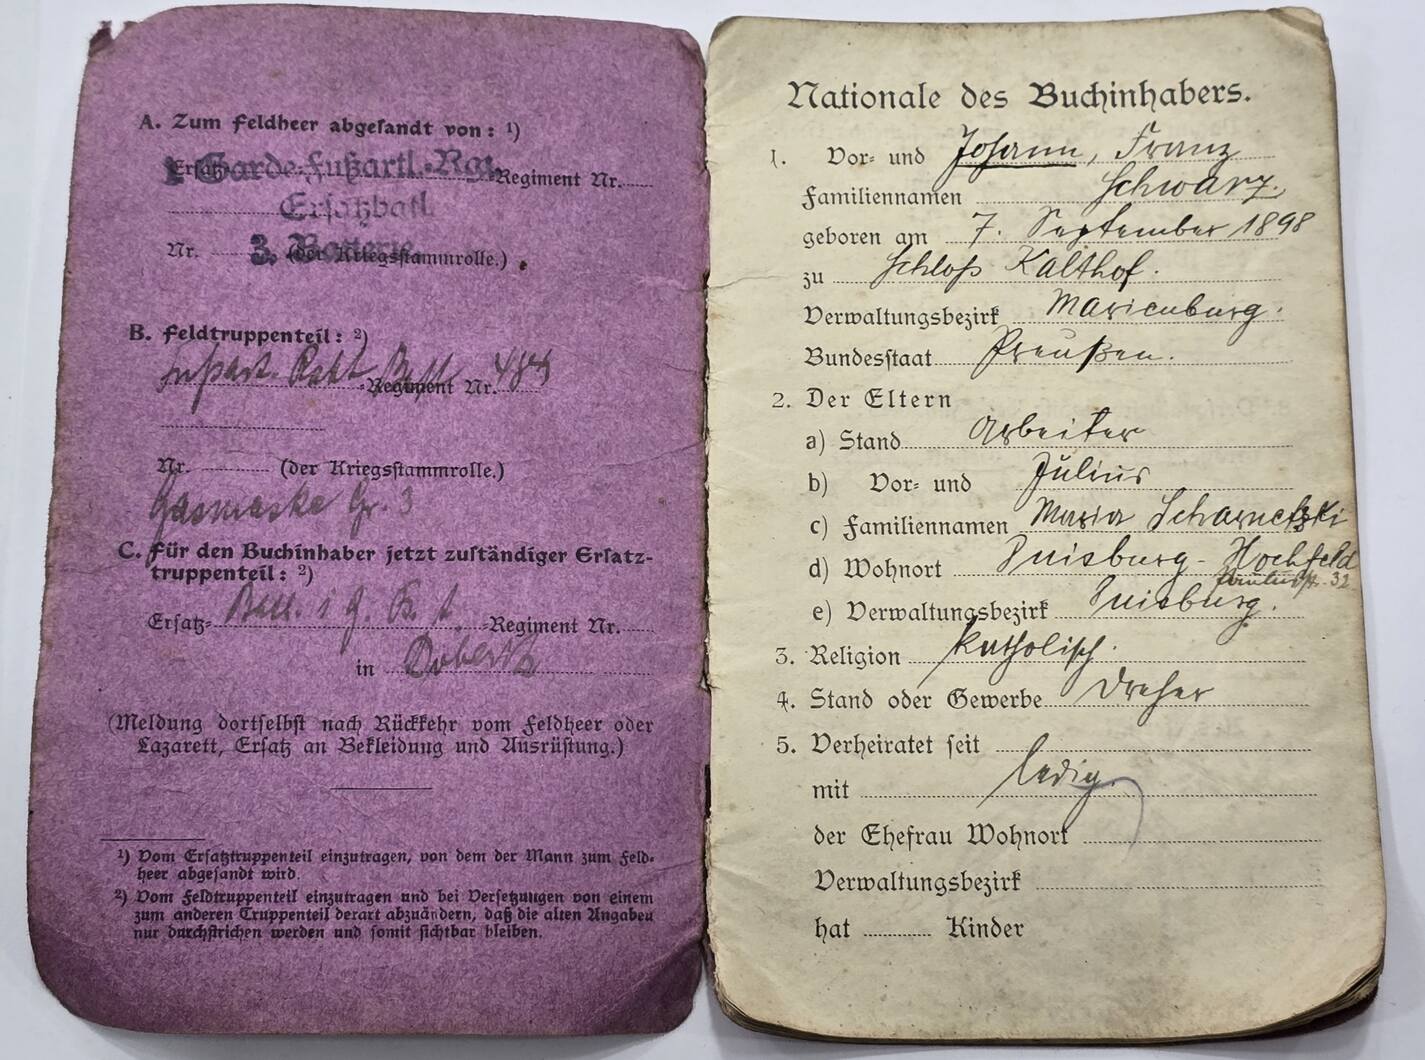 A. Zum Feldheer abgesandt von: ¹)
Ersatz- 1 Garde-Fußartl.-Rgt. Regiment Nr.
Ersatzbatl.
Nr. 3. Batterie (der Kriegsstammrolle.)
B. Feldtruppenteil: ²)
Fußart. Batt. -Regiment Nr. 484
Nr. (der Kriegsstammrolle.)
Gasmaske Gr. 3
C. Für den Buchinhaber jetzt zuständiger Ersatz-
truppenteil: ²)
Ersatz- Batl. 1 g. -Regiment Nr.
in
(Meldung dortselbst nach Rückkehr vom Feldheer oder
Lazarett, Ersatz an Bekleidung und Ausrüstung.)
¹) Vom Ersatztruppenteil einzutragen, von dem der Mann zum Feld-
heer abgesandt wird.
²) Vom Feldtruppenteil einzutragen und bei Versetzungen von einem
zum anderen Truppenteil derart abzuändern, daß die alten Angaben
nur durchstrichen werden und somit sichtbar bleiben.
Nationale des Buchinhabers.
1. Vor- und Johann, Franz
Familiennamen Schwarz.
geboren am 7. September 1898
zu Schloß Kalthof.
Verwaltungsbezirk Marienburg.
Bundesstaat Preußen.
2. Der Eltern
a) Stand Arbeiter
b) Vor- und Julius
c) Familiennamen Maria Scharnetzki
d) Wohnort Duisburg-Hochfeld
32
e) Verwaltungsbezirk Duisburg.
3. Religion katholisch.
4. Stand oder Gewerbe Dreher
5. Verheiratet seit
mit ledig.
der Ehefrau Wohnort
Verwaltungsbezirk
hat Kinder